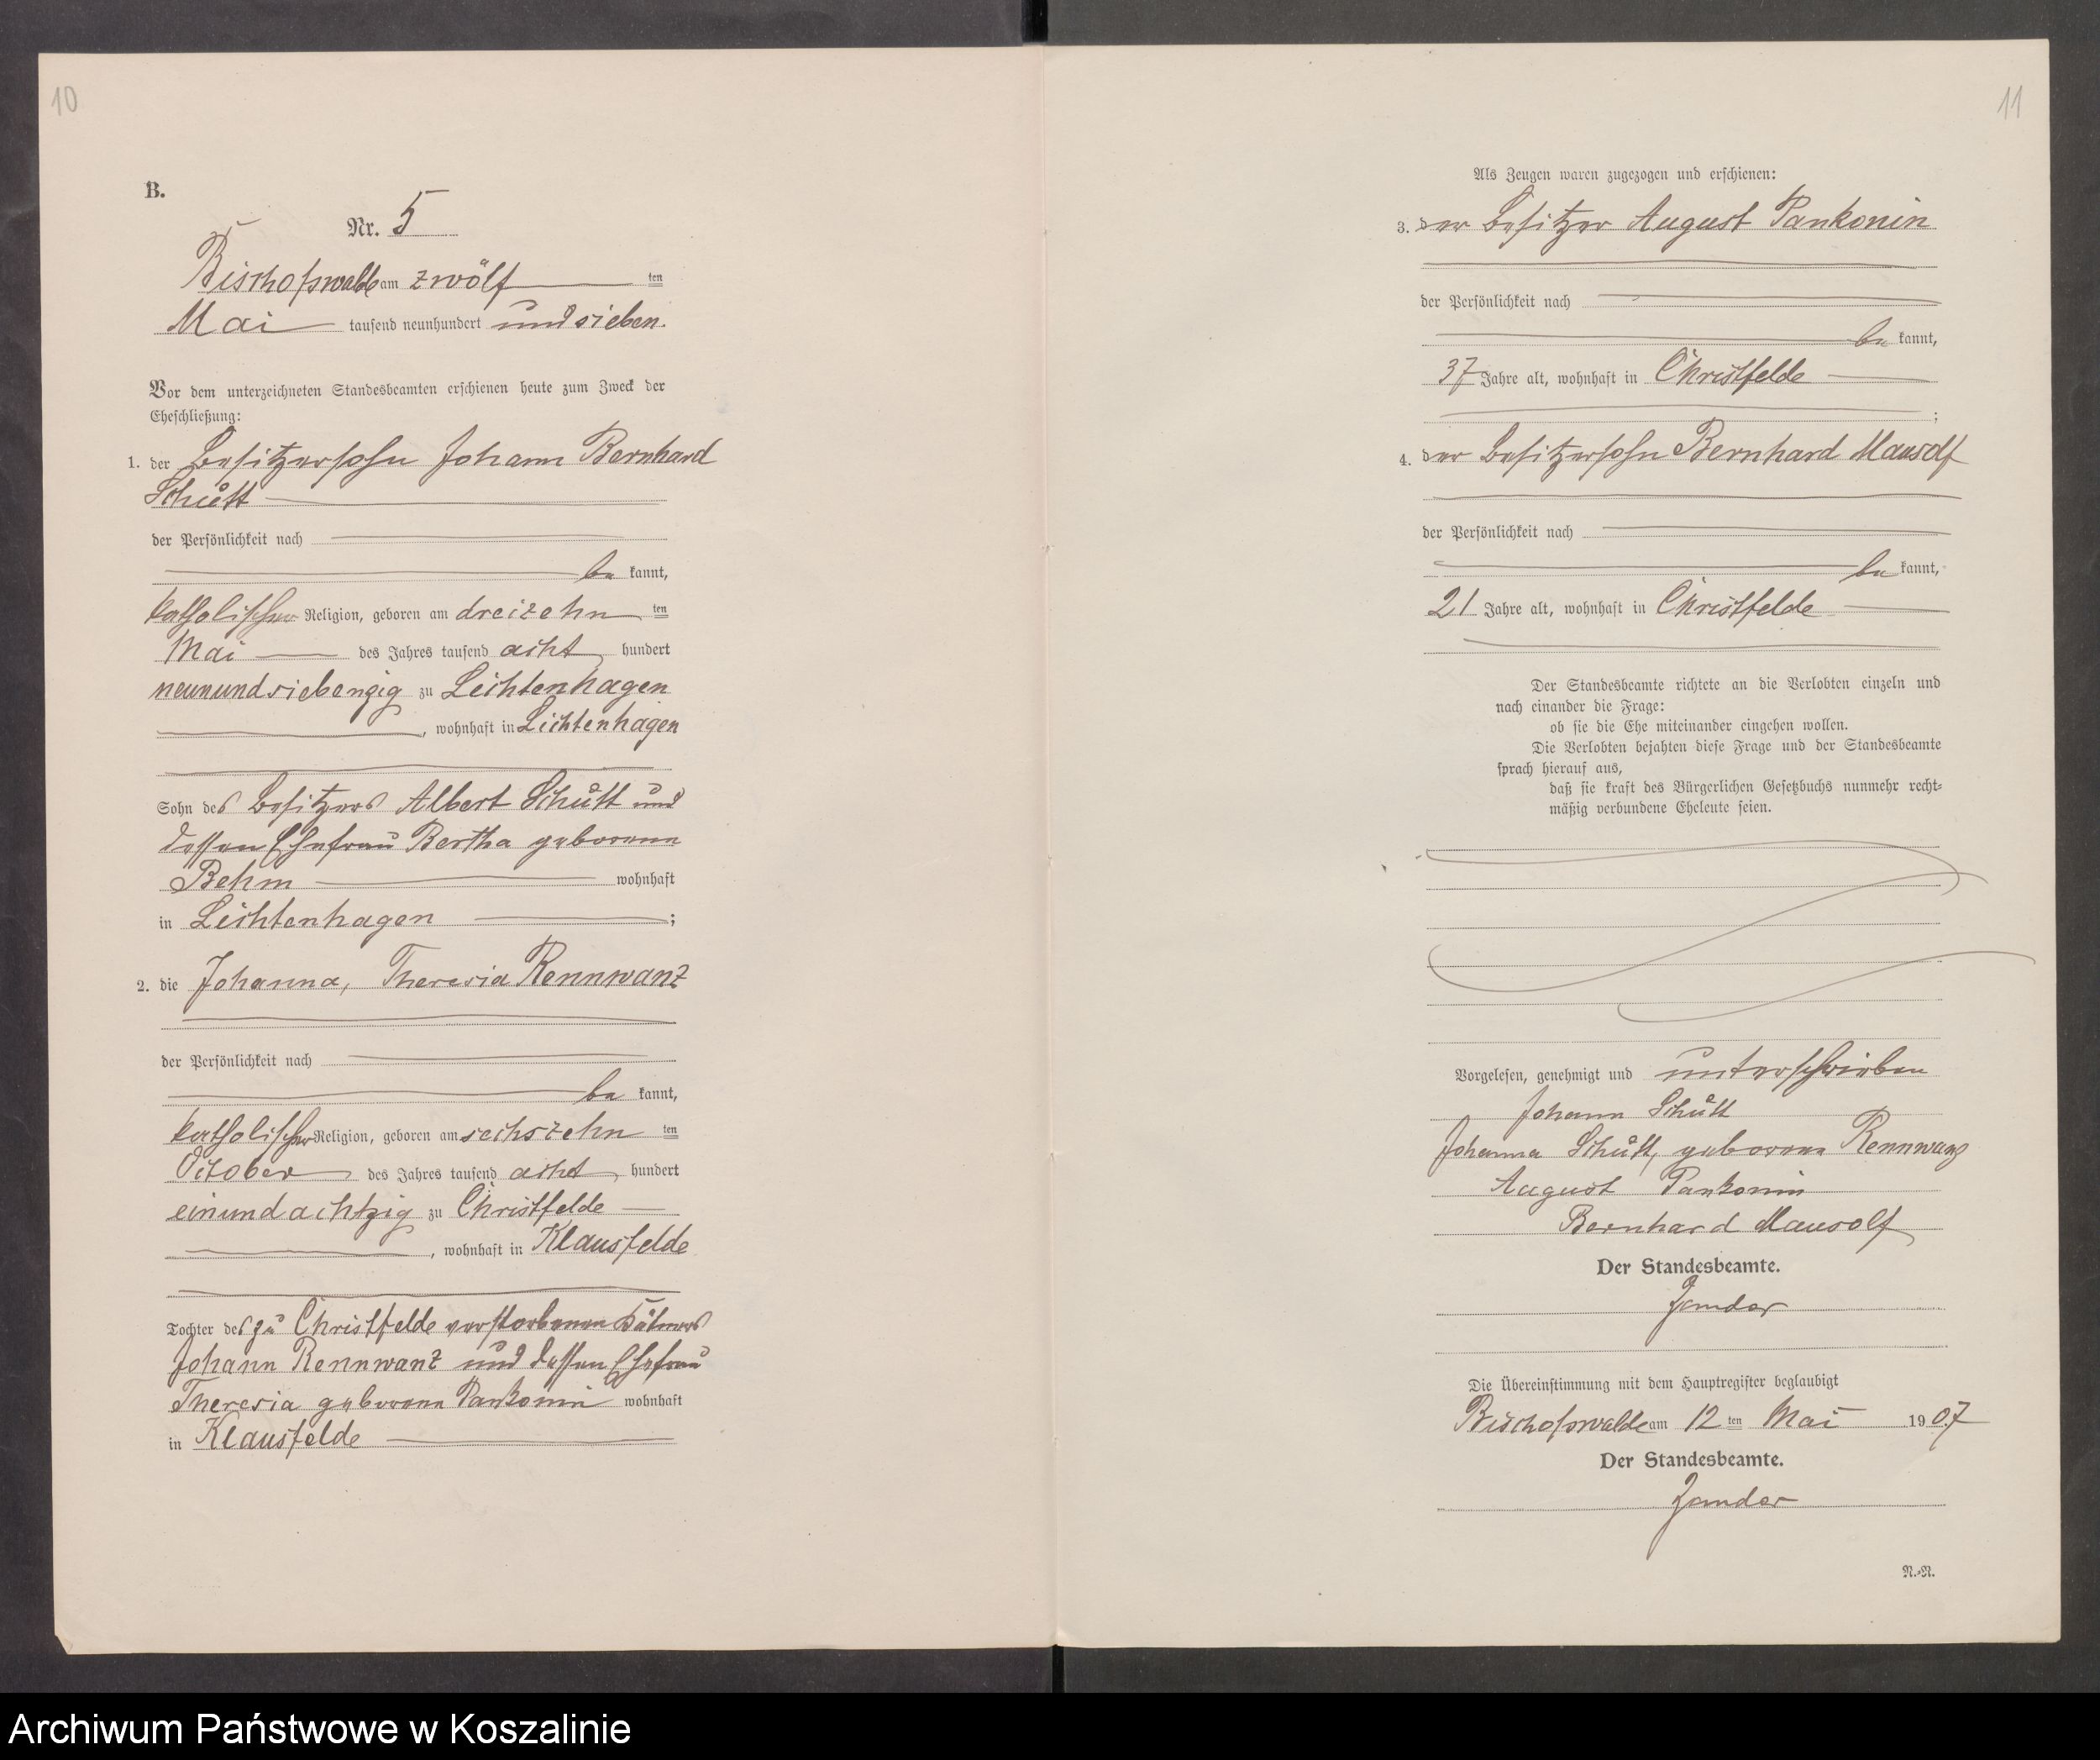 10
B.
Nr. 5
Bischofswalde am zwölf ten
Mai tausend neunhundert und sieben.
Vor dem unterzeichneten Standesbeamten erschienen heute zum Zweck der
Eheschließung:
1. der Besitzersohn Johann Bernhard
Schütt
der Persönlichkeit nach
be kannt,
katholischer Religion, geboren am dreizehn ten
Mai des Jahres tausend acht hundert
neunundsiebenzig zu Lichtenhagen
, wohnhaft in Lichtenhagen
Sohn des Besitzers Albert Schütt und
dessen Ehefrau Bertha geborene
Behm wohnhaft
in Lichtenhagen ;
2. die Johanna, Theresia Rennwanz
der Persönlichkeit nach
be kannt,
katholischer Religion, geboren am sechszehn ten
October des Jahres tausend acht hundert
einundachtzig zu Christfelde
, wohnhaft in Klausfelde
Tochter des zu Christfelde verstorbenen Kätners
Johann Rennwanz und dessen Ehefrau
Theresia geborene Pankonin wohnhaft
in Klausfelde
11
Als Zeugen waren zugezogen und erschienen:
3. der Besitzer August Pankonin
der Persönlichkeit nach
be kannt,
37 Jahre alt, wohnhaft in Christfelde
;
4. der Besitzersohn Bernhard Mausolf
der Persönlichkeit nach
be kannt,
21 Jahre alt, wohnhaft in Christfelde
Der Standesbeamte richtete an die Verlobten einzeln und
nach einander die Frage:
ob sie die Ehe miteinander eingehen wollen.
Die Verlobten bejahten diese Frage und der Standesbeamte
sprach hierauf aus,
daß sie kraft des Bürgerlichen Gesetzbuchs nunmehr recht-
mäßig verbundene Eheleute seien.
Vorgelesen, genehmigt und unterschrieben
Johann Schütt
Johanna Schütt, geborene Rennwanz
August Pankonin
Bernhard Mausolf
Der Standesbeamte.
Zander
Die Übereinstimmung mit dem Hauptregister beglaubigt
Bischofswalde am 12 ten Mai 1907
Der Standesbeamte.
Zander
N.-N.
Archiwum Państwowe w Koszalinie